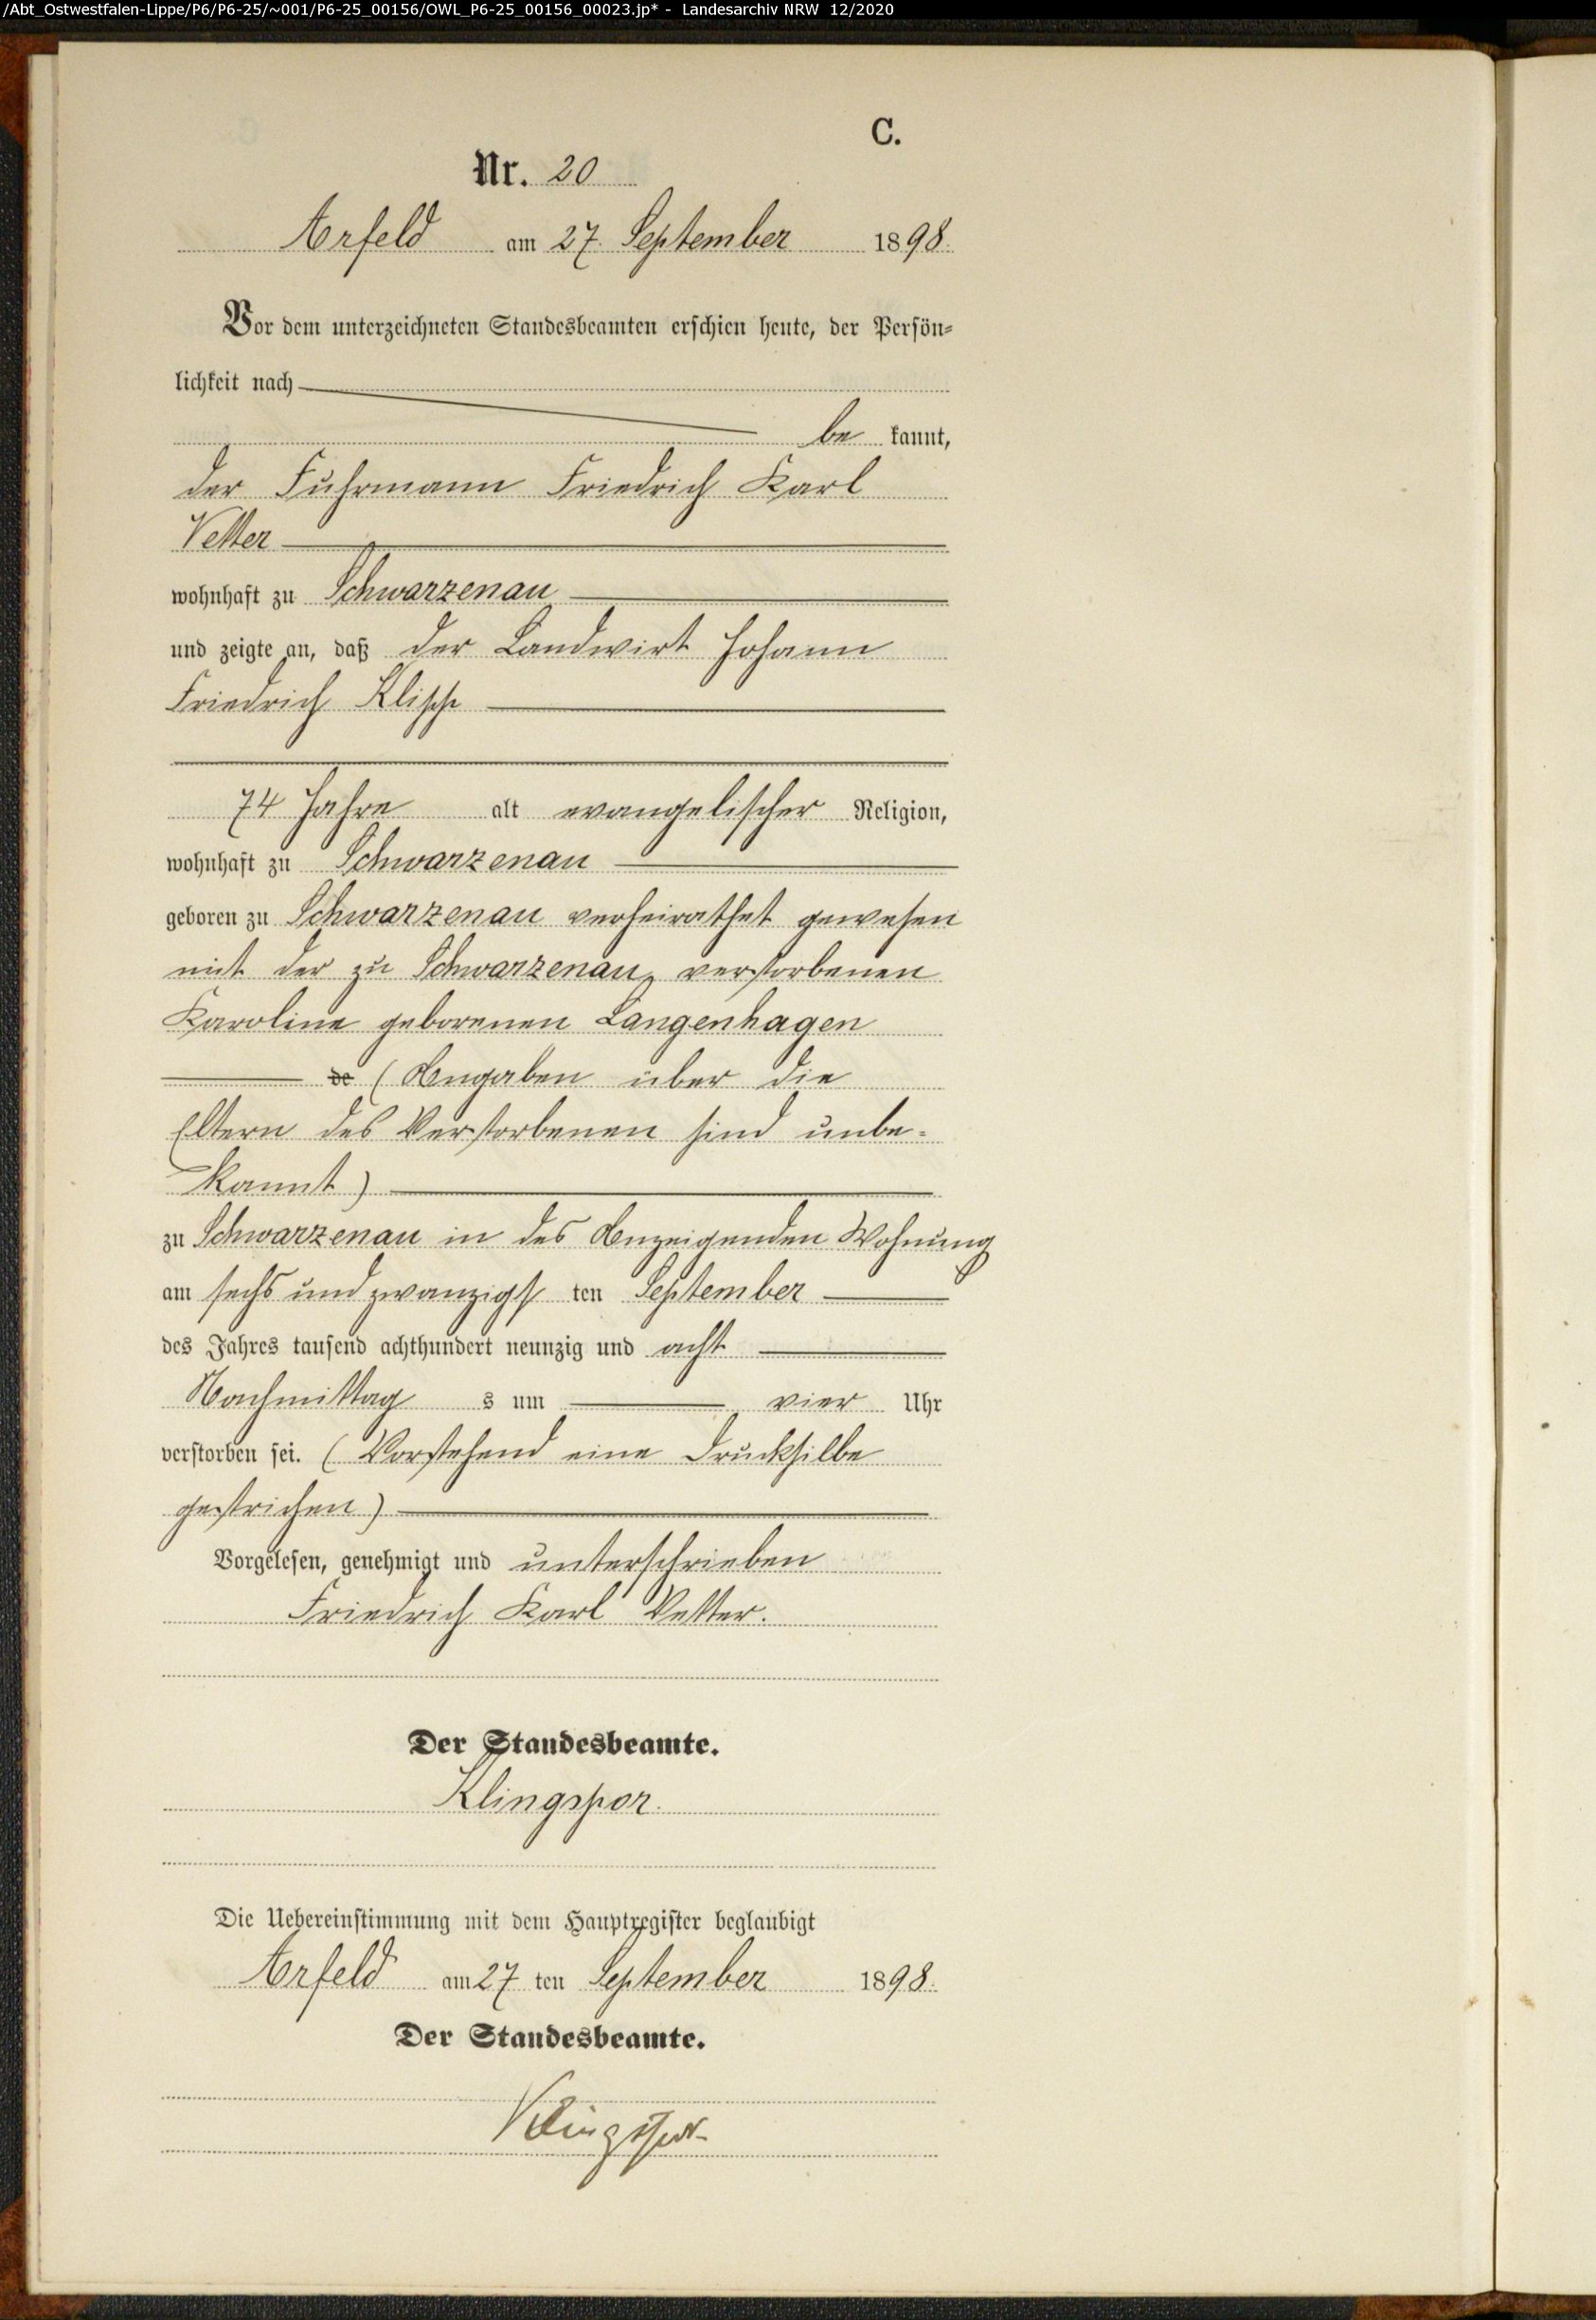 /Abt_Ostwestfalen-Lippe/P6/P6-25/~001/P6-25_00156/OWL_P6-25_00156_00023.jp* - Landesarchiv NRW 12/2020
C.
Nr. 20
Arfeld am 27. September 1898.
Vor dem unterzeichneten Standesbeamten erschien heute, der Persön-
lichkeit nach
be kannt,
der Fuhrmann Friedrich Karl
Vetter
wohnhaft zu Schwarzenau
und zeigte an, daß der Landwirt Johann
Friedrich
74 Jahre alt evangelischer Religion,
wohnhaft zu Schwarzenau
geboren zu Schwarzenau verheirathet gewesen
mit der zu Schwarzenau verstorbenen
Karoline geborenen Langenhagen
de (Angaben über die
Eltern des Verstorbenen sind unbe-
kannt)
zu Schwarzenau in des Anzeigenden Wohnung
am sechs und zwanzigs ten September
des Jahres tausend achthundert neunzig und acht
Nachmittag s um vier Uhr
verstorben sei. (Vorstehend eine Drucksilbe
gestrichen)
Vorgelesen, genehmigt und unterschrieben
Friedrich Karl Vetter.
Der Standesbeamte.
Klingspor.
Die Uebereinstimmung mit dem Hauptregister beglaubigt
Arfeld am 27 ten September 1898.
Der Standesbeamte.
Klingspor